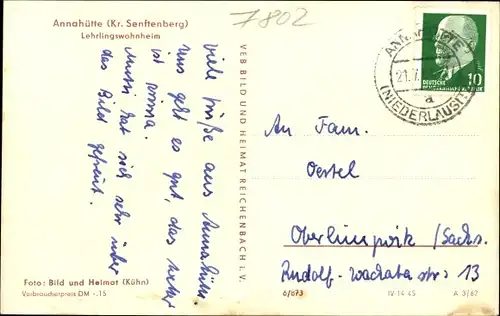 Annahütte (Kr. Senftenberg)
Lehrlingswohnheim
7802
Viele Grüße aus Annahütte.
Uns geht es gut, das Wetter
ist prima.
hat sich sehr über
das Bild gefreut.
Foto: Bild und Heimat (Kühn)
Verbraucherpreis DM -.15
VEB BILD UND HEIMAT REICHENBACH i. V.
ANNAHÜTTE
21.7.
(NIEDERLAUSITZ)
a
10
DEUTSCHE
DEMOKRATISCHE REPUBLIK
An Fam.
Oertel
Oberlungwitz /Sachs.
Rudolf- str. 13
6/673
IV-14-45
A 3/62